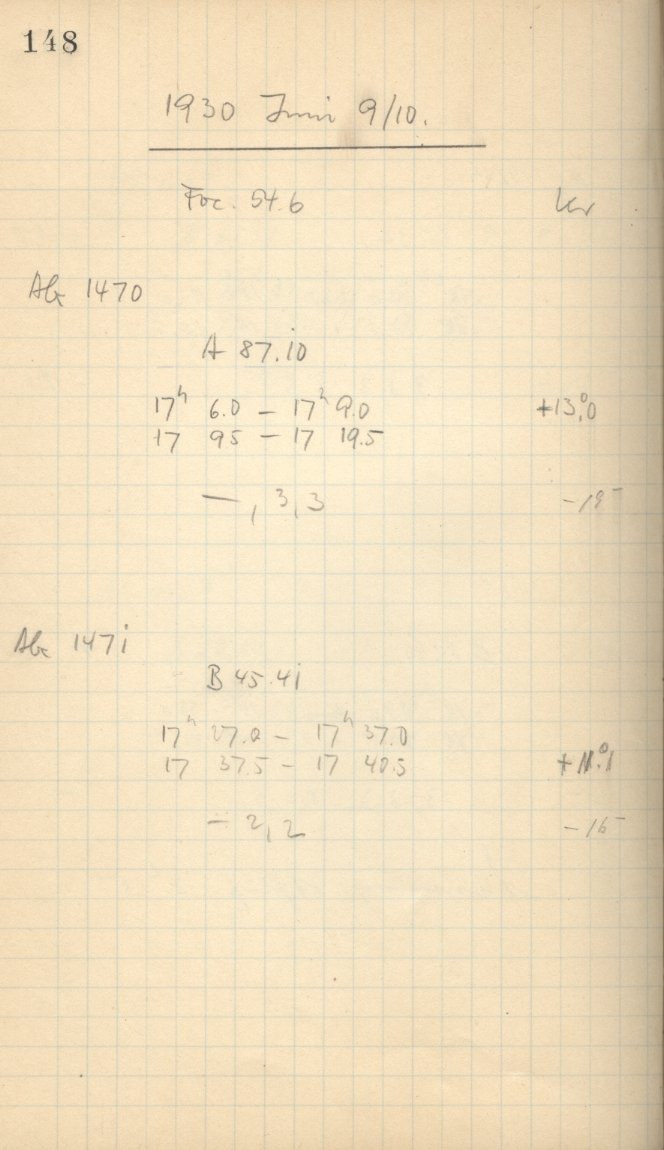 148
1930 Juni 9/10.
Foc. 54.6 Kr
1470
A 87.10
17h 6.0 – 17h 9.0 +13.°0
17 9 5 – 17 19.5
–, 3, 3
1471
B 45.41
17h 27.0 – 17h 37.0
17 37.5 – 17 40.5 +11.°1
– 2, 2